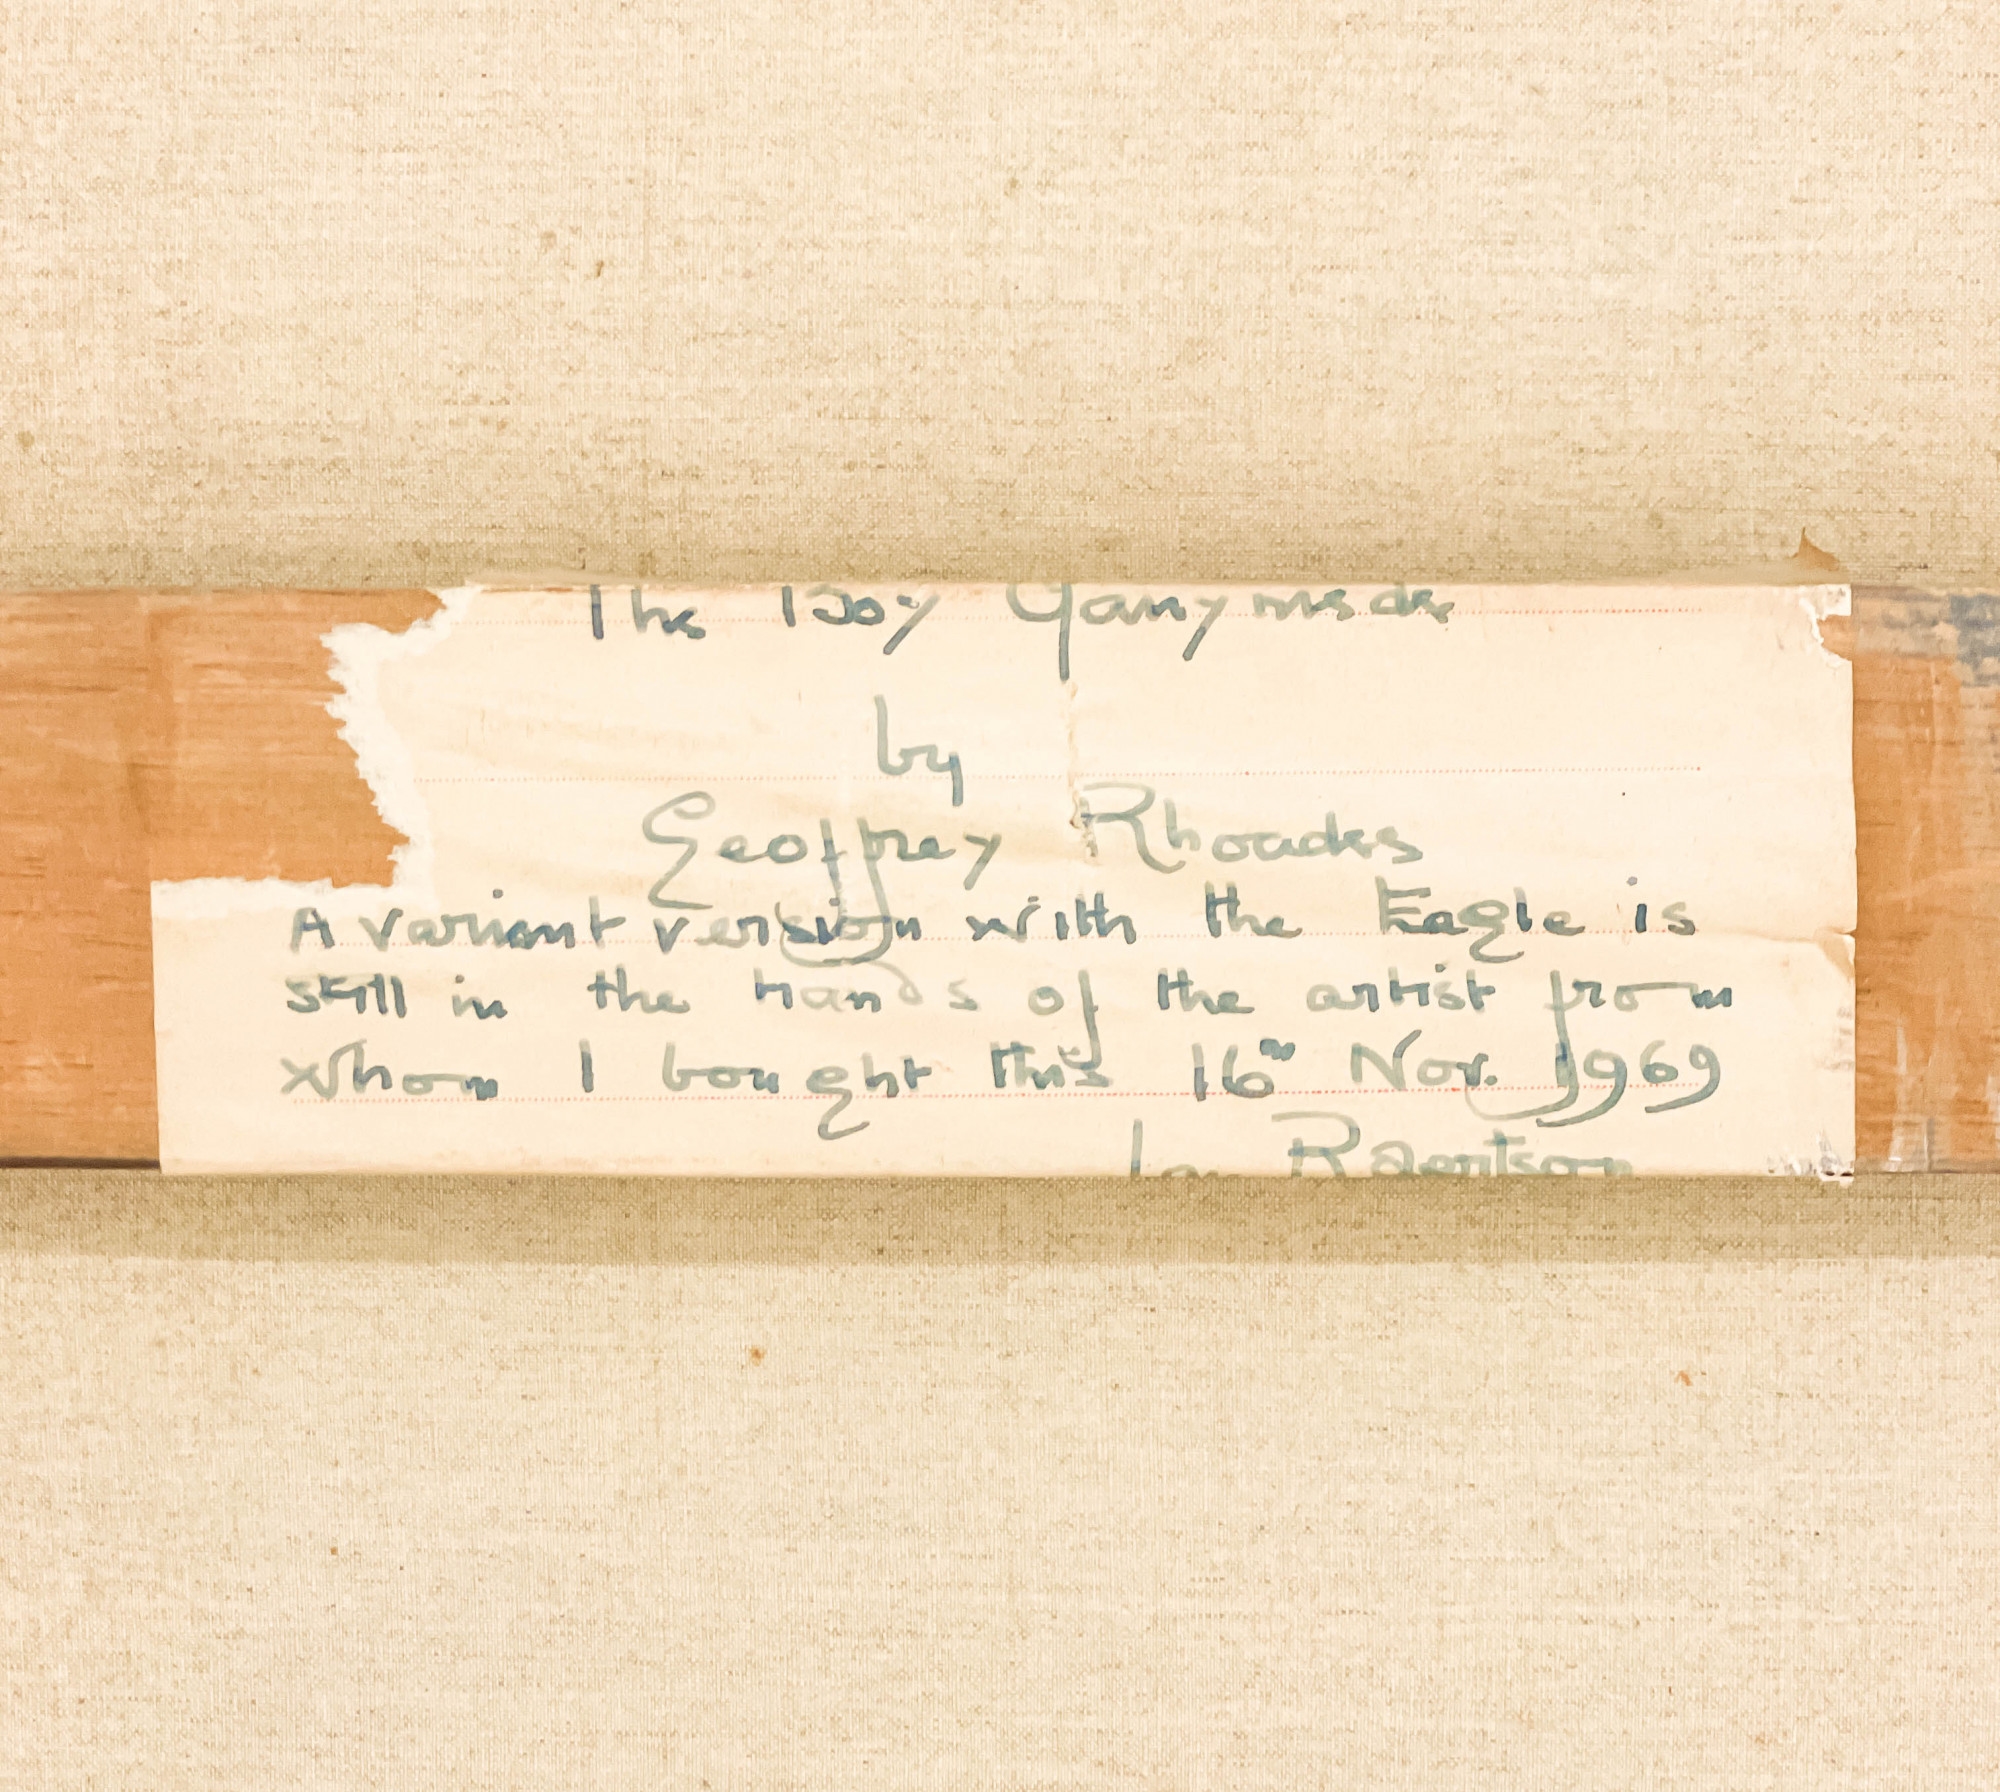 The Boy Ganymede
by
Geoffrey Rhoades
A variant version with the Eagle is
still in the hands of the artist from
whom I bought this 16th Nov. 1969